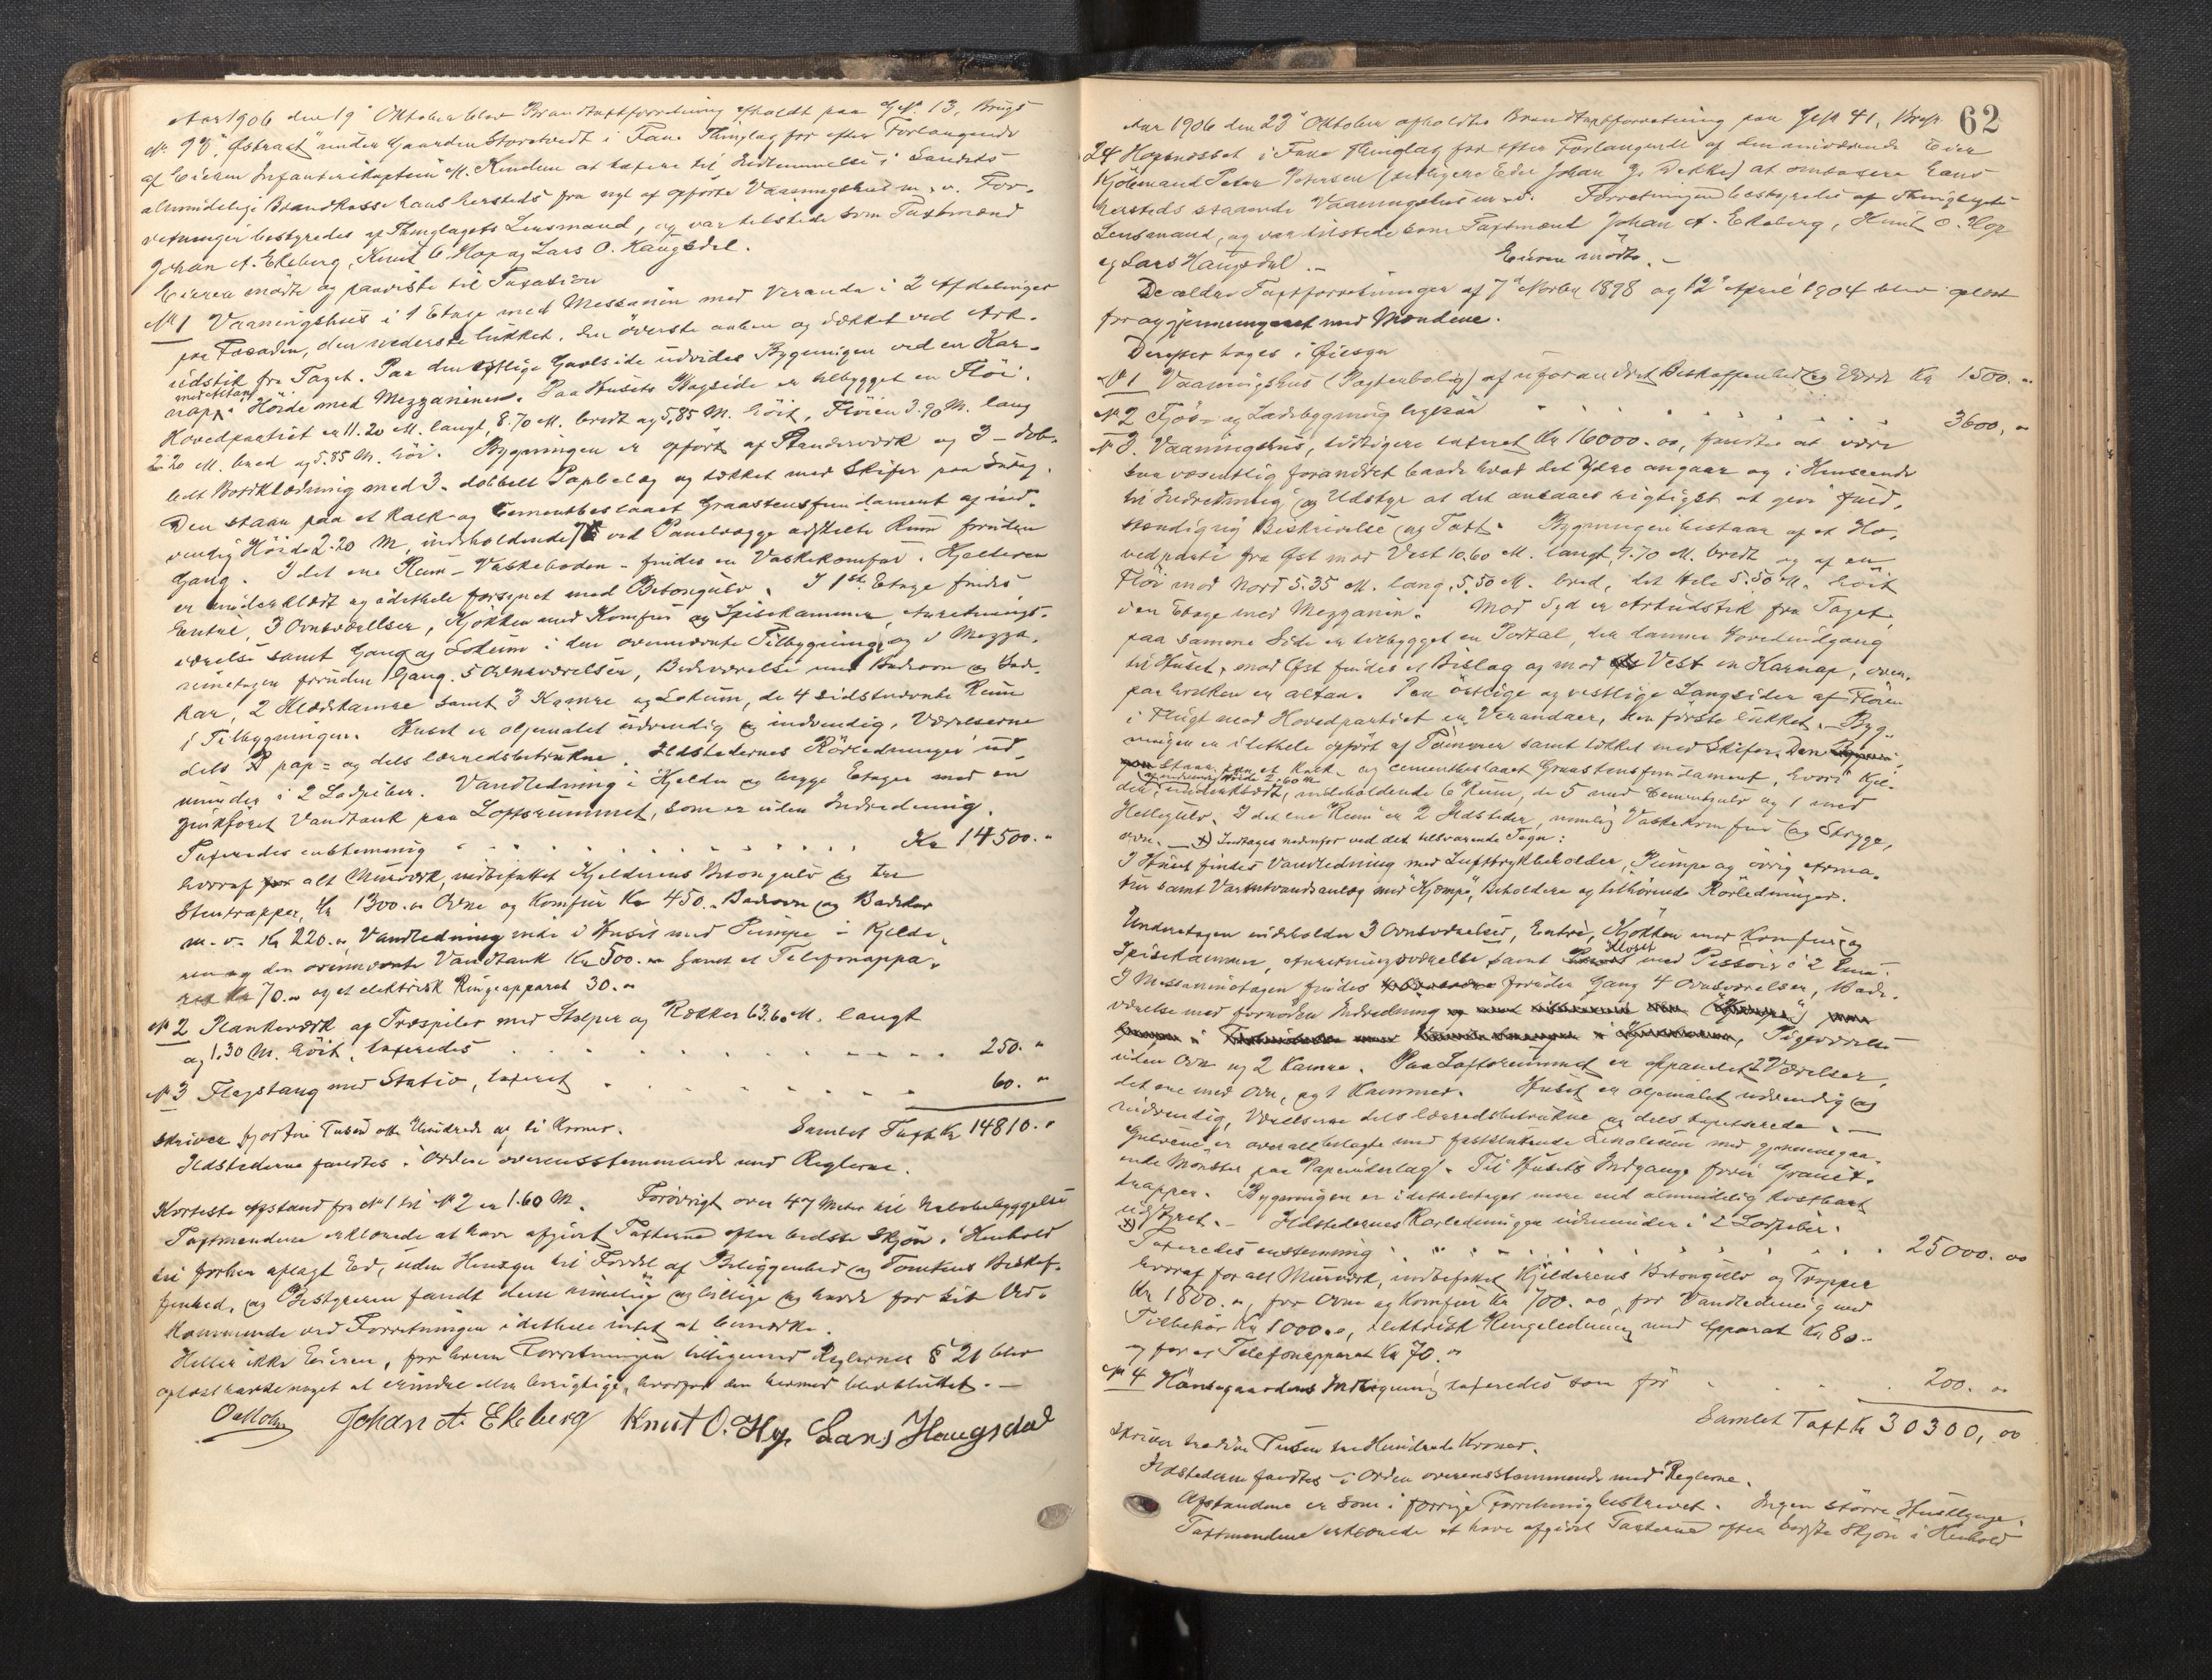 Aar 1906 den 19de Oktober blev Brandtaxtforretning afholdt paa G.No. 13, Brugs
No. 93, "Östraat" under Gaarden Storetvedt i Fane Thinglag for efter Forlangende
af Eieren Infanterikaptein M. Kindem at taxere til Indlemmelse i Landets
almindelige Brandkasse hans hersteds fra nyt af opförte Vaaningshus m. v. For-
retningen bestyredes af Thinglagets Lensmand, og var tilstede som Taxtmænd
Johan A. Ekeberg, Knut O. Hop og Lars O. Haugsdal.
Eieren mödte og paaviste til Taxation
No 1 Vaaningshus i 1 Etage med Messanin med Veranda i 2 Afdelinger
paa Facaden, den nederste lukket, den överste aaben og dækket ved Ark-
udstik fra Taget. Paa den östlige Gavlside udvides Bygningen ved en Kar-
nap med Altan i Höide med Mezzaninen. Paa Husets Bagside er tilbygget en Flöi.
Hovedpartiet er 11.20 M. langt, 8.70 M. bredt og 5,85 M. höit, Flöien 3.90 M. lang
2.20 M. bred og 5.85 M. höi. Bygningen er opfört af Standerværk og 3-dob-
belt Bordklædning med 3-dobbelt Papbelæg og tækket med Skifer paa
Den staar paa et Kalk- og Cementbeslaaet Graastensfundament af ind-
vendig Höide 2.20 M, indeholdende 7 ved Panelvægge adskilte Rum foruden
Gang. I det ene Rum - Vaskeboden - findes en Vaskekomfur. Kjelderen
er underklædt og idethele forsynet med Betongulv. I 1ste Etage findes
Entré, 3 Ovnsværelser, Kjökken med Komfur og Spisekammer, Anretnings-
værelse samt Gang og Lokum i den ovennævnte Tilbygning, og i Mezza-
ninetagen foruden Gang 5 Ovnsværelser, Badeværelse med Badeovn og Bade-
kar, 2 Klædekamre samt 3 Kamre og Lokum, de 4 sidstnævnte Rum
i Tilbygningen. Huset er oljemalet udvendig og indvendig, Værelserne
dels pap- og dels lærredsbetrukne. Ildstedernes Rörledninger ud-
munder i 2 Ladpiber. Vandledning i Kjelder og begge Etager med en
zinkforet Vandtank paa Loftsrummet, som er uden Indredning.
Taxeredes enstemmig Kr 14500.-
hvoraf for alt Murværk, indbefattet Kjelderens Betongulv og tre
Stentrapper, Kr 1300.- Ovne og Komfur Kr 450.- Badeovn og Badekar
m. v. Kr 220.-, Vandledning inde i Huset med Pumpe i Kjelde-
ren og den ovennævnte Vandtank Kr 500.- samt et Telefonappa-
rat Kr 70.- og et elektrisk Ringeapparat 30.-
No 2 Plankeværk af Træspiler med Stolper og Rækker 63.60 M. langt
og 1.30 M. höit, taxeredes 250.-
No 3 Flagstang med Stativ, taxeret 60.-
Samlet Taxt Kr 14810.-
skriver fjorten Tusen otte Hundrede og ti Kroner.
Ildstederne fandtes i Orden overensstemmende med Reglerne.
Korteste Afstand fra No 1 til No 2 er 1.60 M. Forövrigt over 47 Meter til Nabobebyggelse
Taxtmændene erklærede at have afgivet Taxterne efter bedste Skjön i Henhold
til forhen aflagt Ed, uden Hensyn til Fordel af Beliggenhed og Tomtens Beskaf-
fenhed, og Bestyreren fandt dem rimelige og billige og havde for sit Ved-
kommende ved Forretningen idethele intet at bemærke.
Heller ikke Eieren, for hvem Forretningen i Reglernes § 21 blev
oplæst havde noget at erindre eller berigtige, hvorfor den hermed blev sluttet.-
Johan A. Ekeberg Knut O. Hop Lars Haugsdal
62
Aar 1906 den 23de Oktober afholdtes Brandtaxtforretning paa G.No 41, Br.No
24 Hopsnesset i Fane Thinglag for efter Forlangende af den nuværende Eier
Kjöbmand Peter Petersen (tidligere Eier Johan G. Dekke) at omtaxere hans
hersteds staaende Vaaningshus m. v. Forretningen bestyredes af Thinglagets
Lensmand, og var tilstede som Taxtmænd Johan A. Ekeberg, Knut O. Hop
og Lars Haugsdal.- Eieren mödte.-
De ældre Taxtforretninger af 7de Novbr 1898 og 12te April 1904 blev oplæst
for og gjennemgaaet med Mændene.
Derefter toges i Öiesyn
No 1 Vaaningshus (Pagterbolig) af uforandret Beskaffenhed og Værdi Kr 1500.-
No 2 Fjös- og Ladebygning ligesaa 3600,-
No 3. Vaaningshus, tidligere taxeret Kr 16000.00, fandtes at være
saa væsentlig forandret baade hvad det Ydre angaar og i Henseende
til Indredning og Udstyr at det ansaaes rigtigst at give fuld-
stændig ny Beskrivelse og Taxt. Bygningen bestaar af et Ho-
vedparti fra Öst mod Vest 10.60 M. langt, 9.70 M. bredt og af en
Flöi mod Nord 5.35 M. lang, 5.50 M. bred, det Hele 5.50 M. höit
den Etage med Mezzanin. Mod Syd er Arkudstik fra Taget,
paa samme Side er tilbygget en Portal, der danner Hovedindgang
til Huset, mod Öst findes et Bislag og mod Vest en Karnap, oven-
paa hvilken er altan. Paa östlige og vestlige Langsider af Flöien
i Flugt med Hovedpartiet er Verandaer, den förste lukket. Byg-
ningen er idethele opfört af Tömmer samt tækket med Skifer. Den
Staar paa et Kalk- og cementbeslaaet Graastensfundament, hvori Kjel-
der, af indvendig Höide 2.60 m underklædt, indeholdende 6 Rum, de 5 med Cementgulv og 1 med
Hellegulv. I det ene Rum er 2 Ildsteder, nemlig Vaskekomfur og Stryge-
ovn.- Indtages nedenfor ved det tilsvarende Tegn:
I Huset findes Vandledning med Lufttrykbeholder, Pumpe og övrig Arma-
tur samt Varmtvandsanlæg med "Kjempe", Beholdere og tilhörende Rörledninger.
Underetagen indeholder 3 Ovnsværelser, Entré, Kjökken med Komfur og
Spisekammer, Anretningsværelse samt Kloset med Pissoir i 2 Rum.
I Messaninetagen findes foruden Gang 4 Ovnsværelser, Bade-
værelse med fornöden Indredning, Pigeværelse
uden Ovn og 2 Kamre. Paa Loftsrummet er afpanelet 2 Værelser,
det ene med Ovn, og 1 Kammer. Huset er oljemalet udvendig og
indvendig, Værelserne dels lærredsbetrukne og dels tapetserede.-
Gulvene er overalt belagte med fastklinede Linoleum med gjennemgaa-
ende Mönster paa Papunderlag. Til Husets Indgange förer Granit-
trapper. Bygningen er i det hele taget mere end almindelig kostbart
udstyret.- Ildstedernes Rörledninger udmunder i 2 Ladpiber.
Taxeredes enstemmig 25000.00
hvoraf for alt Murværk, indbefattet Kjelderens Betongulv og Trapper
Kr 1800.-, for Ovne og Komfur Kr 700.00, for Vandledning med
Tilbehör Kr 1000.-, elektrisk Ringeledning med Apparat Kr 80.-
og for et Telefonapparat Kr 70.-
No 4 Hönsegaardens Indhegning taxeredes som för 200.00
Samlet Taxt Kr 30300,00
skriver tredive Tusen tre Hundrede Kroner.
Ildstederne fandtes i Orden overensstemmende med Reglerne.
Afstandene er som i forrige Forretning beskrevet. Ingen större Husklynge.
Taxtmændene erklærede at have afgivet Taxterne efter bedste Skjön i Henhold